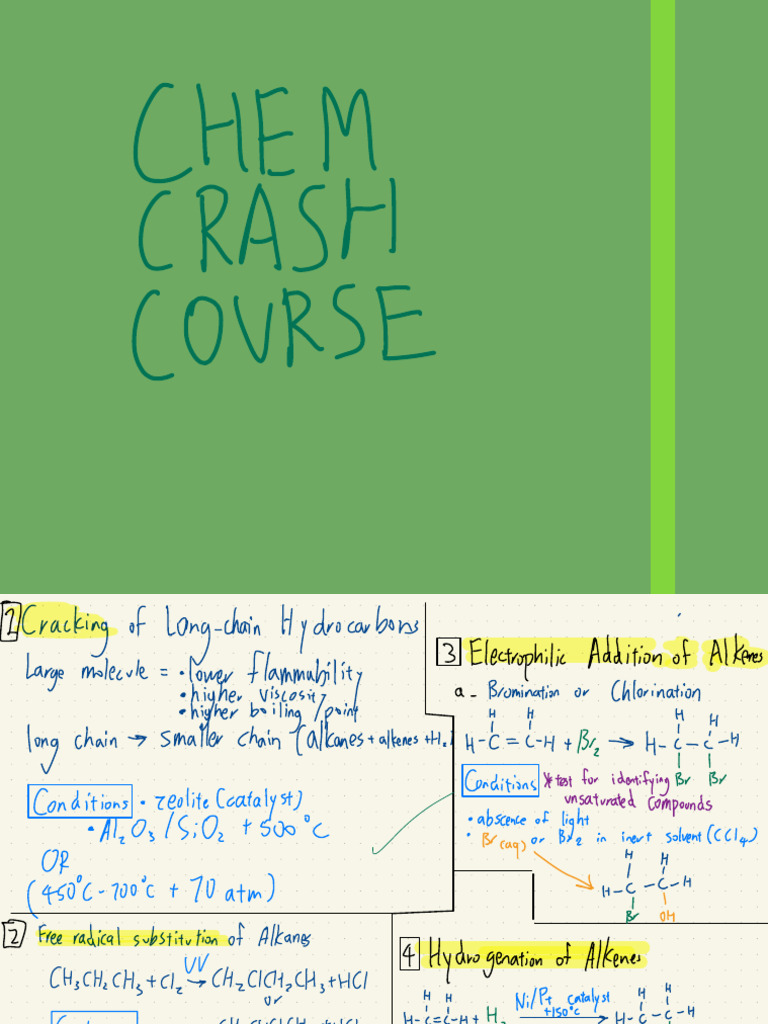 CHEM
CRASH
COURSE
1 Cracking of Long-chain Hydrocarbons
Large molecule = • lower flammability
• higher viscosity
• higher boiling/point
long chain → smaller chain (alkanes + alkenes + H₂)
Conditions • zeolite (catalyst)
• Al₂O₃/SiO₂ + 500°C
OR
(450°C-700°C + 70 atm)
2 Free radical substitution of Alkanes
UV
CH₃CH₂CH₃ + Cl₂ → CH₂ClCH₂CH₃ + HCl
or
3 Electrophilic Addition of Alkenes
a - Bromination or Chlorination
H H
H-C=C-H + Br₂ → H-C-C-H
H H
Br Br
Conditions * test for identifying
unsaturated compounds
• abscence of light
• Br(aq) or Br₂ in inert solvent (CCl₄)
H H
H-C-C-H
Br OH
4 Hydrogenation of Alkenes
Ni/Pt catalyst
+150°C
H H
H-C=C-H + H₂ → H-C-C-H
H H